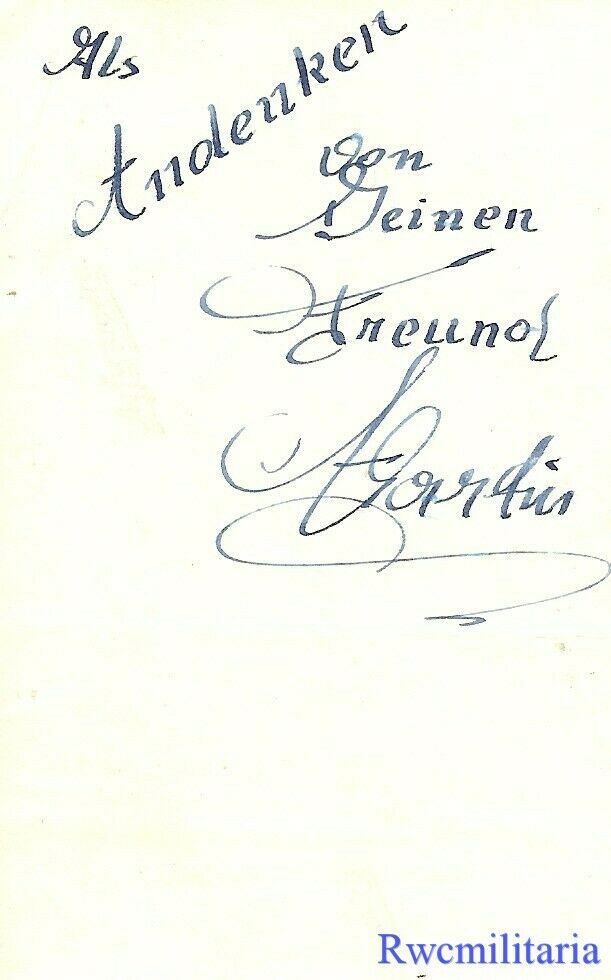 Als
Andenken
von
Deinen
Freund
Rwcmilitaria